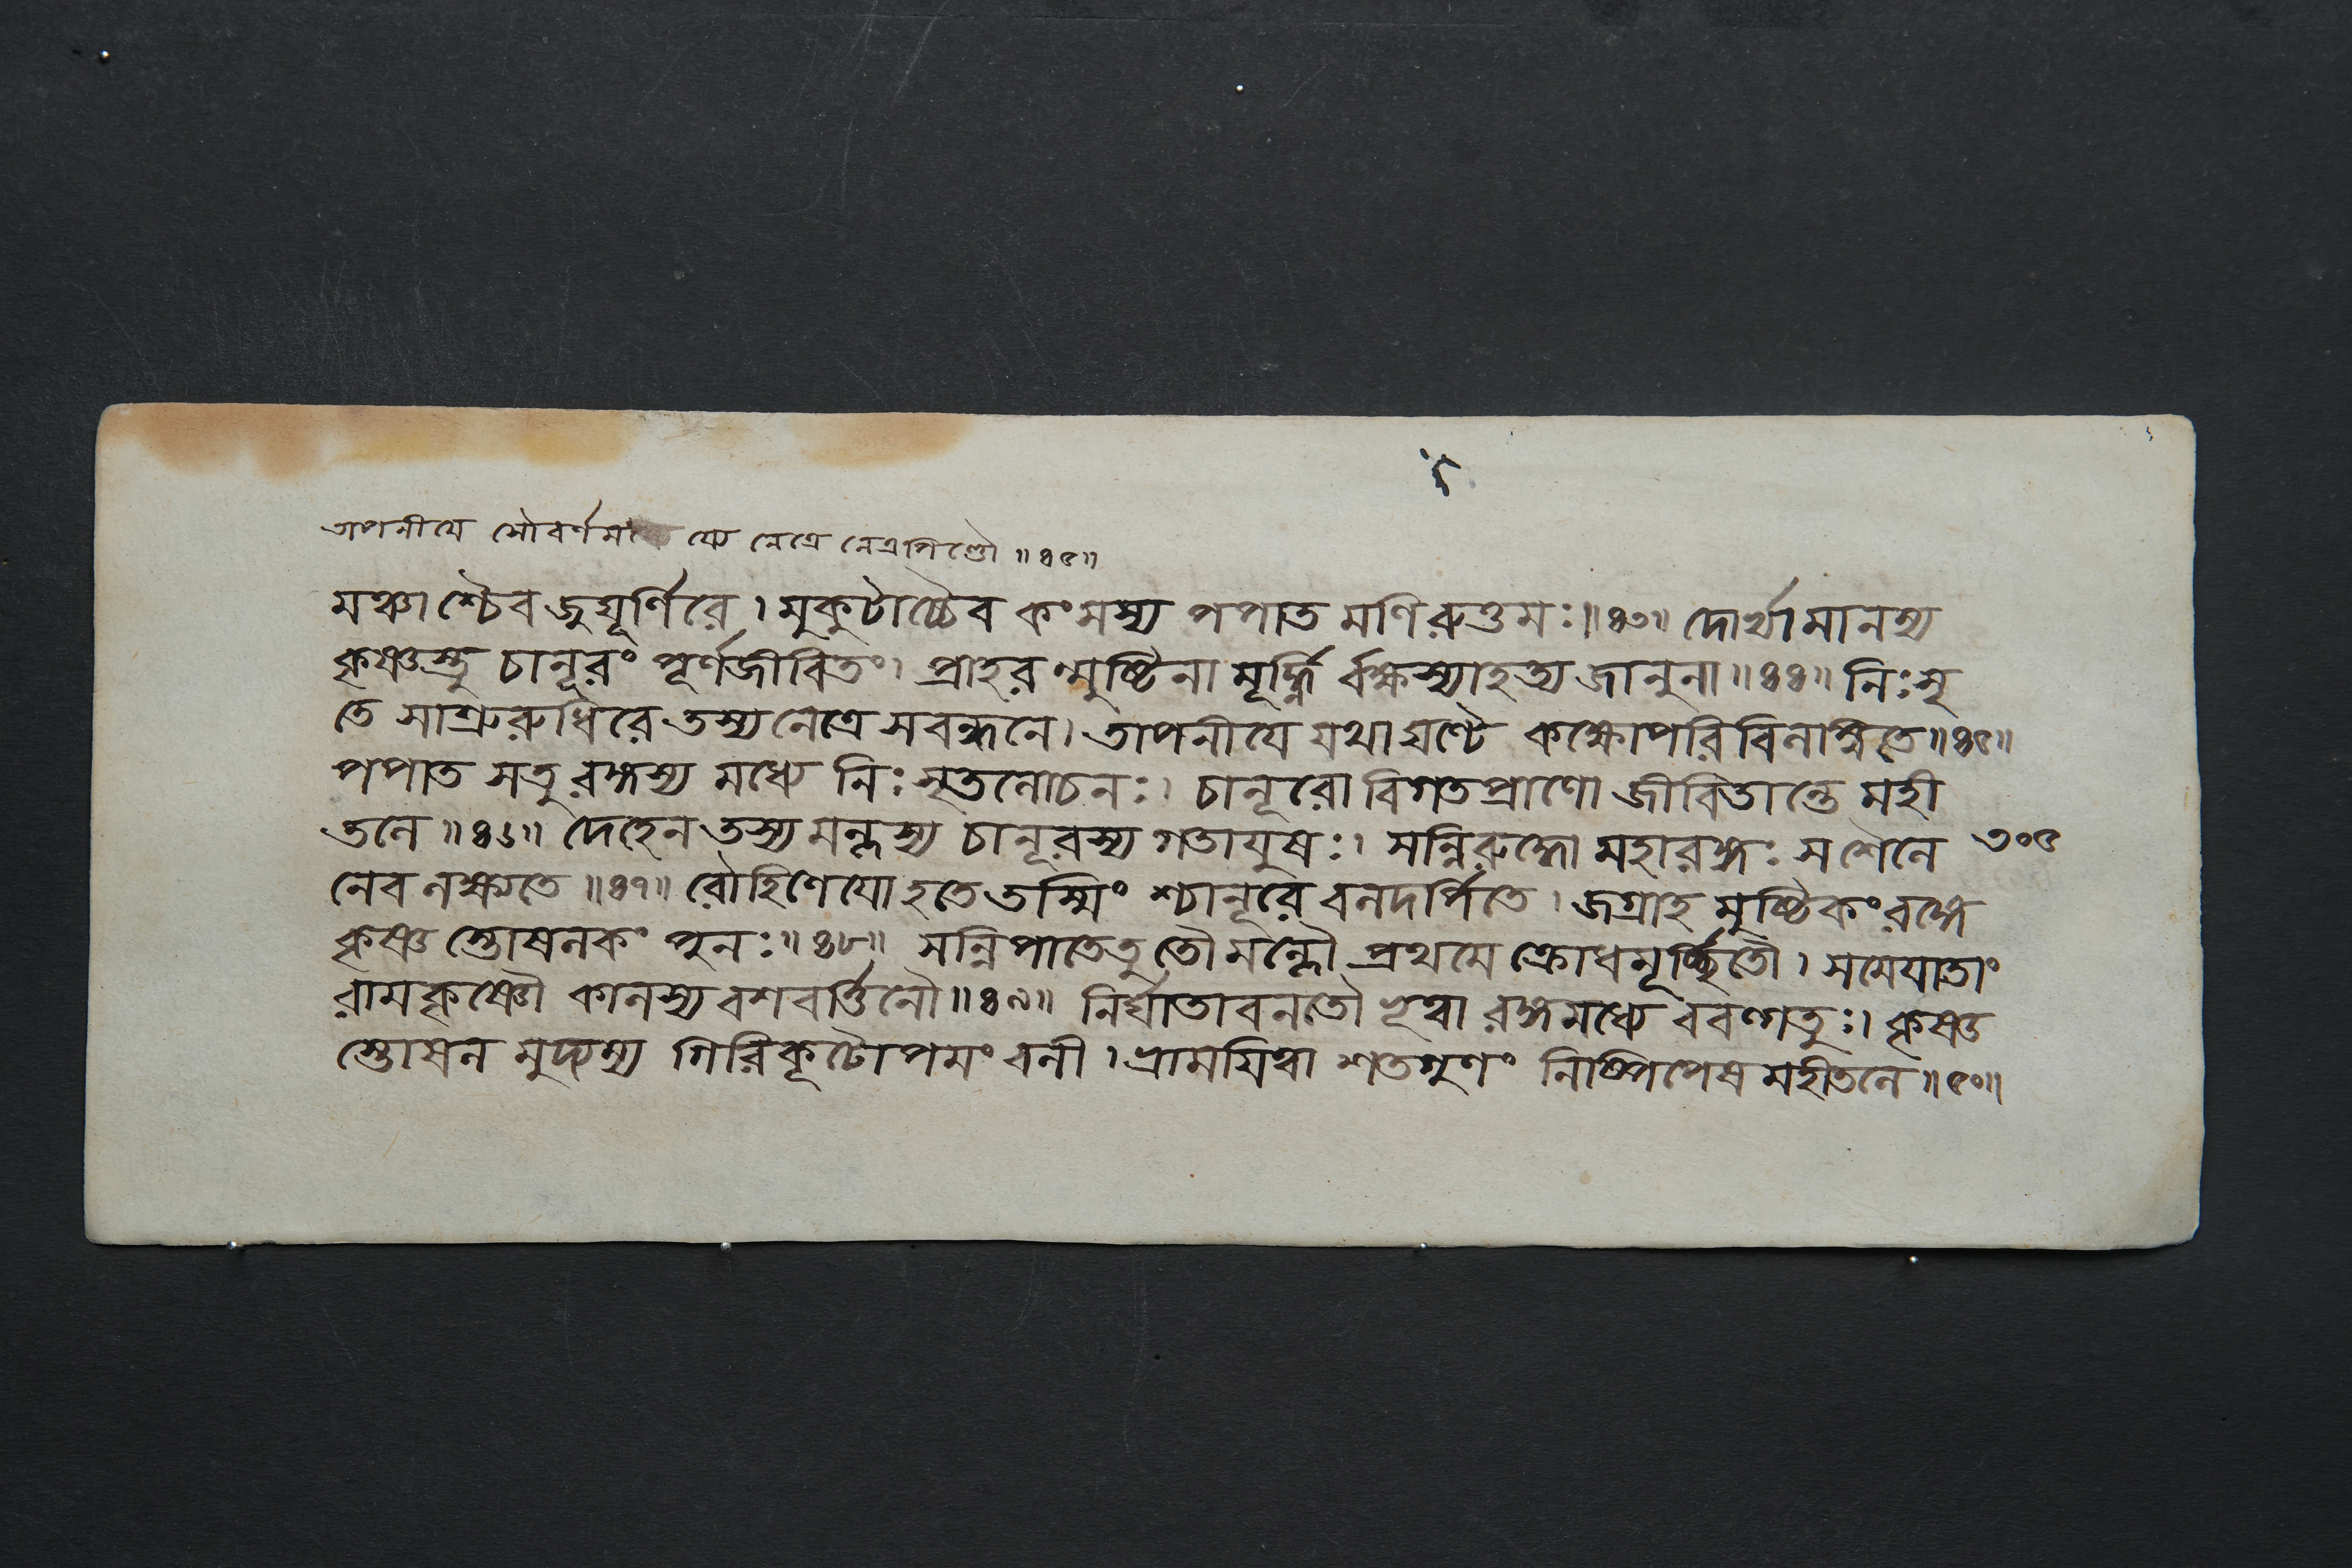 তাপনীয়ে সৌবর্ণময়ে নেত্রে নেত্রপিণ্ডৌ ॥৪৫॥
মঞ্চাশ্চৈব জুঘূর্ণিরে। মুকুটাচ্চৈব কংসস্য পপাত মণিরুত্তমঃ॥৪৩॥ দোর্ভ্যামানম্য
কৃষ্ণস্তু চানূরং পূর্ণজীবিতং। প্রাহরন্মুষ্টিনা মূর্দ্ধ্নি র্বক্ষস্যাহত্য জানুনা॥৪৪॥ নিঃসৃ
তে সাশ্রুরুধিরে তস্য নেত্রে সবন্ধনে। তাপনীয়ে যথা ঘণ্টে কক্ষোপরিবিলম্বিতে॥৪৫॥
পপাত সতু রঙ্গস্য মধ্যে নিঃসৃতলোচনঃ। চানূরো বিগতপ্রাণো জীবিতান্তে মহী
তলে॥৪৬॥ দেহেন তস্য মল্লস্য চানূরস্য গতায়ুষঃ। সন্নিরুদ্ধো মহারঙ্গঃ স শৈলে ৩০৫
নেব লক্ষ্যতে॥৪৭॥ রৌহিণেয়ো হতে তস্মিং শ্চানূরে বলদর্পিতে। জগ্রাহ মুষ্টিকং রঙ্গে
কৃষ্ণ স্তোষলকং পুনঃ॥৪৮॥ সন্নিপাতেতু তৌ মল্লৌ প্রথমে ক্রোধমূর্চ্ছিতৌ। সমেয়াতাং
রামকৃষ্ণৌ কালস্য বশবর্ত্তিনৌ॥৪৯॥ নির্ঘাতাবনতৌ ভূত্বা রঙ্গমধ্যে ববল্গতুঃ। কৃষ্ণ
স্তোষল মুদ্যম্য গিরিকূটোপমং বলী। ভ্রাময়িত্বা শতগুণং নিষ্পিপেষ মহীতলে॥৫০॥